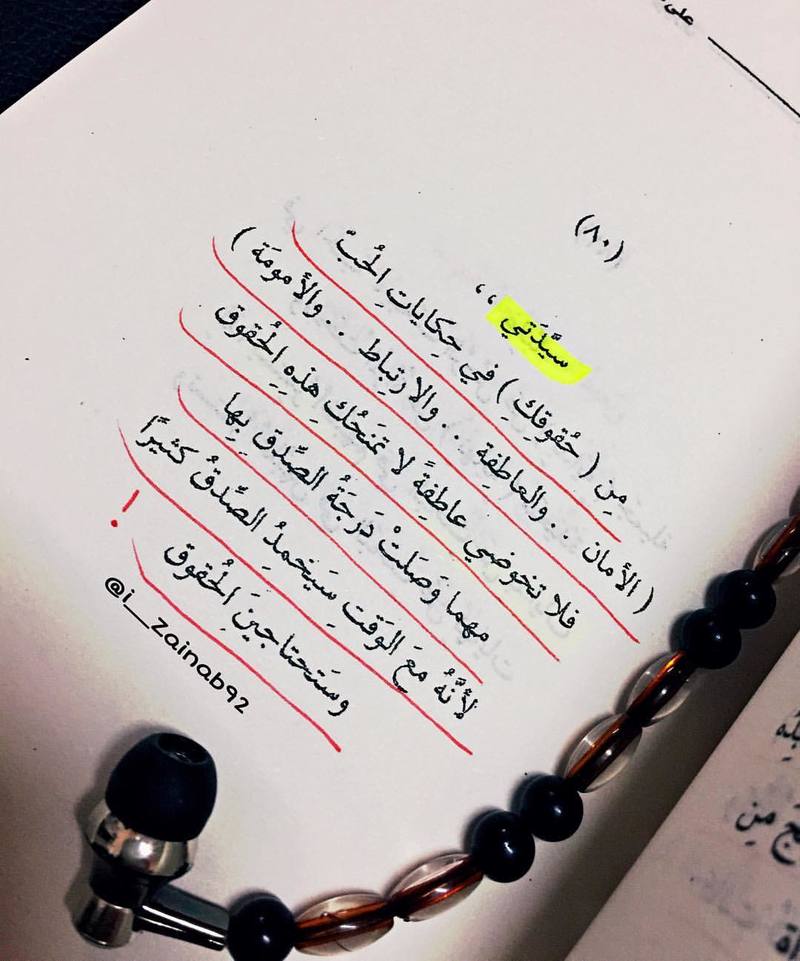 على
(٨٠)
سيَّدَتي ،،
مِن ( حُقوقِكِ ) في حِكاياتِ الحُبّ
( الأمان .. والعاطِفِة .. والارتِباط .. والأمومَة )
فلا تخوضي عاطِفةً لا تمنَحُك هذِهِ الحُقوق
مهما وَصَلَتْ دَرجَةُ الصِّدق بِها
لأنَّهُ معَ الوَقتِ سيَخمدُ الصِّدقُ كثيرًا
وسَتحتاجينَ الحُقوق !
@i__zainab92
مِن